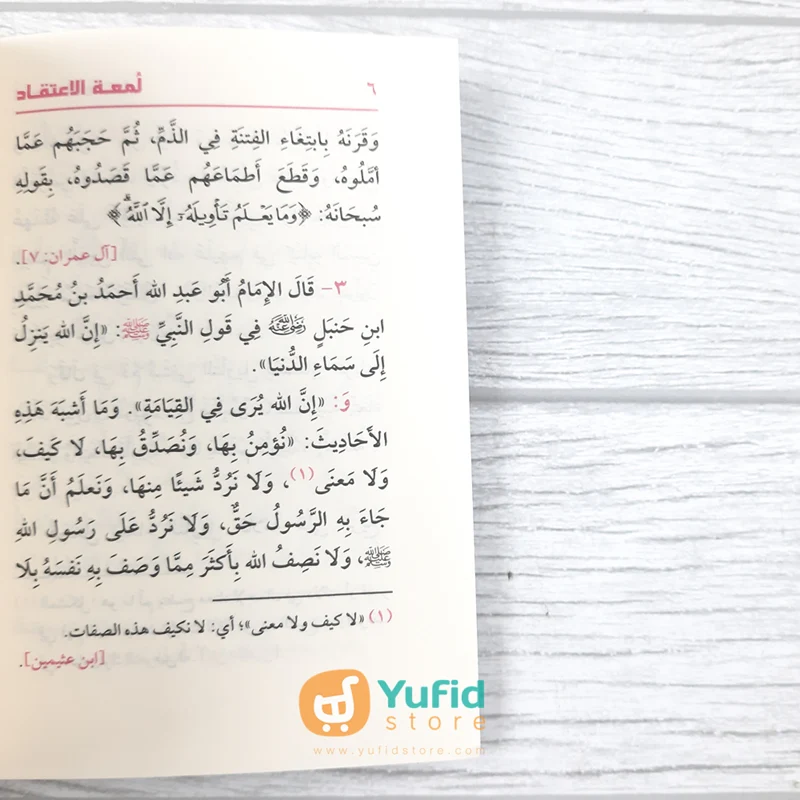 ٦ لمعة الاعتقاد
وَقَرَنَهُ بِابتِغَاءِ الفِتنَةِ فِي الذَّمِّ، ثُمَّ حَجَبَهُم عَمَّا
أَمَّلُوهُ، وَقَطَعَ أَطمَاعَهُم عَمَّا قَصَدُوهُ، بِقَولِهِ
سُبحَانَهُ: ﴿وَمَا يَعْلَمُ تَأْوِيلَهُۥٓ إِلَّا ٱللَّهُۗ﴾
[آل عمران: ٧].
٣- قَالَ الإِمَامُ أَبُو عَبدِ الله أَحمَدُ بنُ مُحَمَّدِ
ابنِ حَنبَلٍ رَضِيَ اللَّهُ عَنْهُ فِي قَولِ النَّبِيِّ ﷺ: «إِنَّ الله يَنزِلُ
إِلَى سَمَاءِ الدُّنيَا».
وَ: «إِنَّ الله يُرَى فِي القِيَامَةِ». وَمَا أَشبَهَ هَذِهِ
الأَحَادِيثَ: «نُؤمِنُ بِهَا، وَنُصَدِّقُ بِهَا، لَا كَيفَ،
وَلَا مَعنَى(١)، وَلَا نَرُدُّ شَيئًا مِنهَا، وَنَعلَمُ أَنَّ مَا
جَاءَ بِهِ الرَّسُولُ حَقٌّ، وَلَا نَرُدُّ عَلَى رَسُولِ اللهِ
ﷺ، وَلَا نَصِفُ الله بِأَكثَرَ مِمَّا وَصَفَ بِهِ نَفسَهُ بِلَا
(١) «لا كيف ولا معنى»؛ أي: لا نكيف هذه الصفات.
[ابن عثيمين].
Yufid
store
www.yufidstore.com